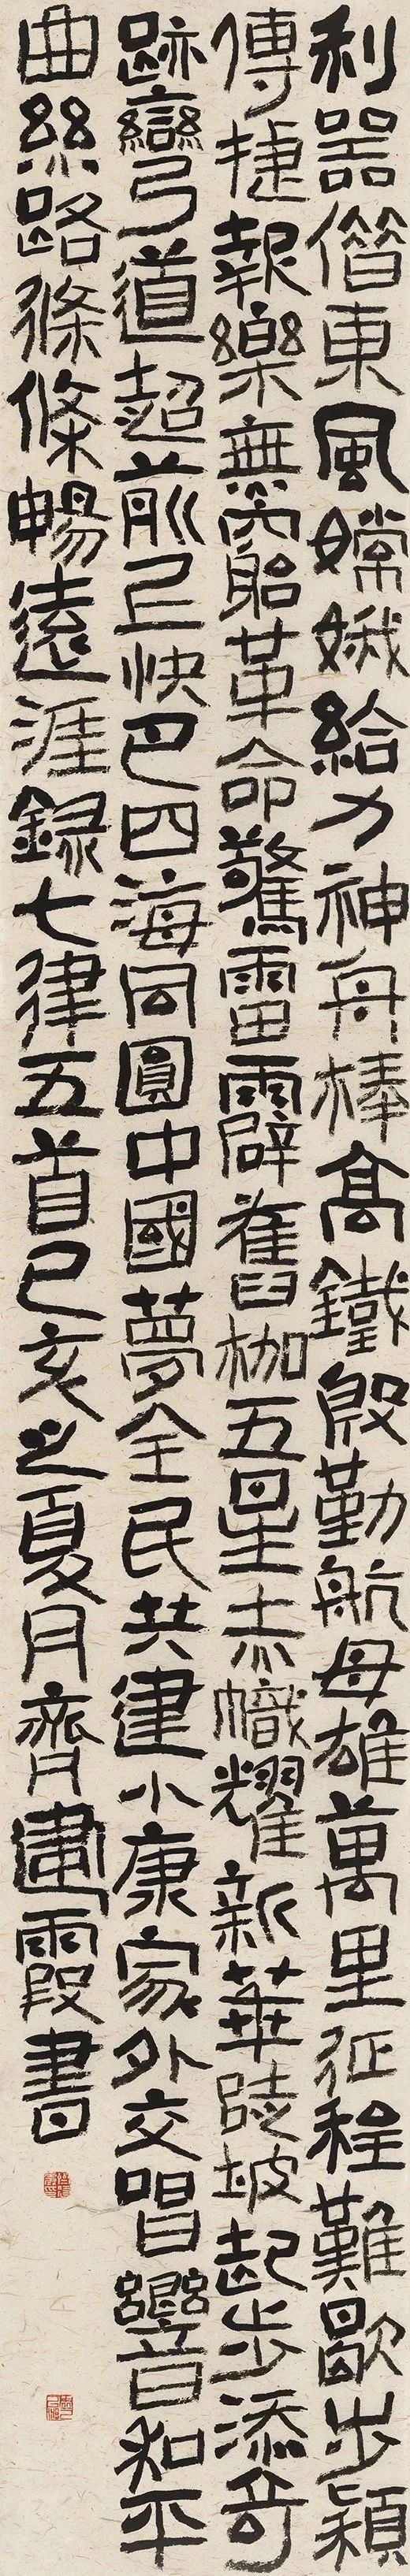 利器偕東風嫦娥給力神舟棒高鐵殷勤航母雄萬里征程難歇步穎
傳捷報樂無窮船革命驚雷霹舊枷五星赤幟耀新華陡坡起步添奇
跡彎弓道超前正快巴四海同圓中國夢全民共建小康家外交唱響音和平
曲絲路條條暢遠涯錄七律五首己亥之夏月齊建霞書